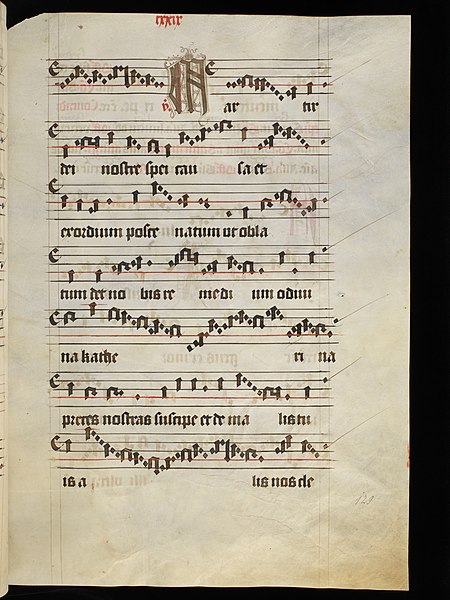 cxxix
Mar tir
dei nostre spei cau sa et
exordium posce natum ut obla
tum det no bis re medi um o diui
na kathe ri na
preces nostras suscipe et de ma lis tu
is a lis nos cle
129